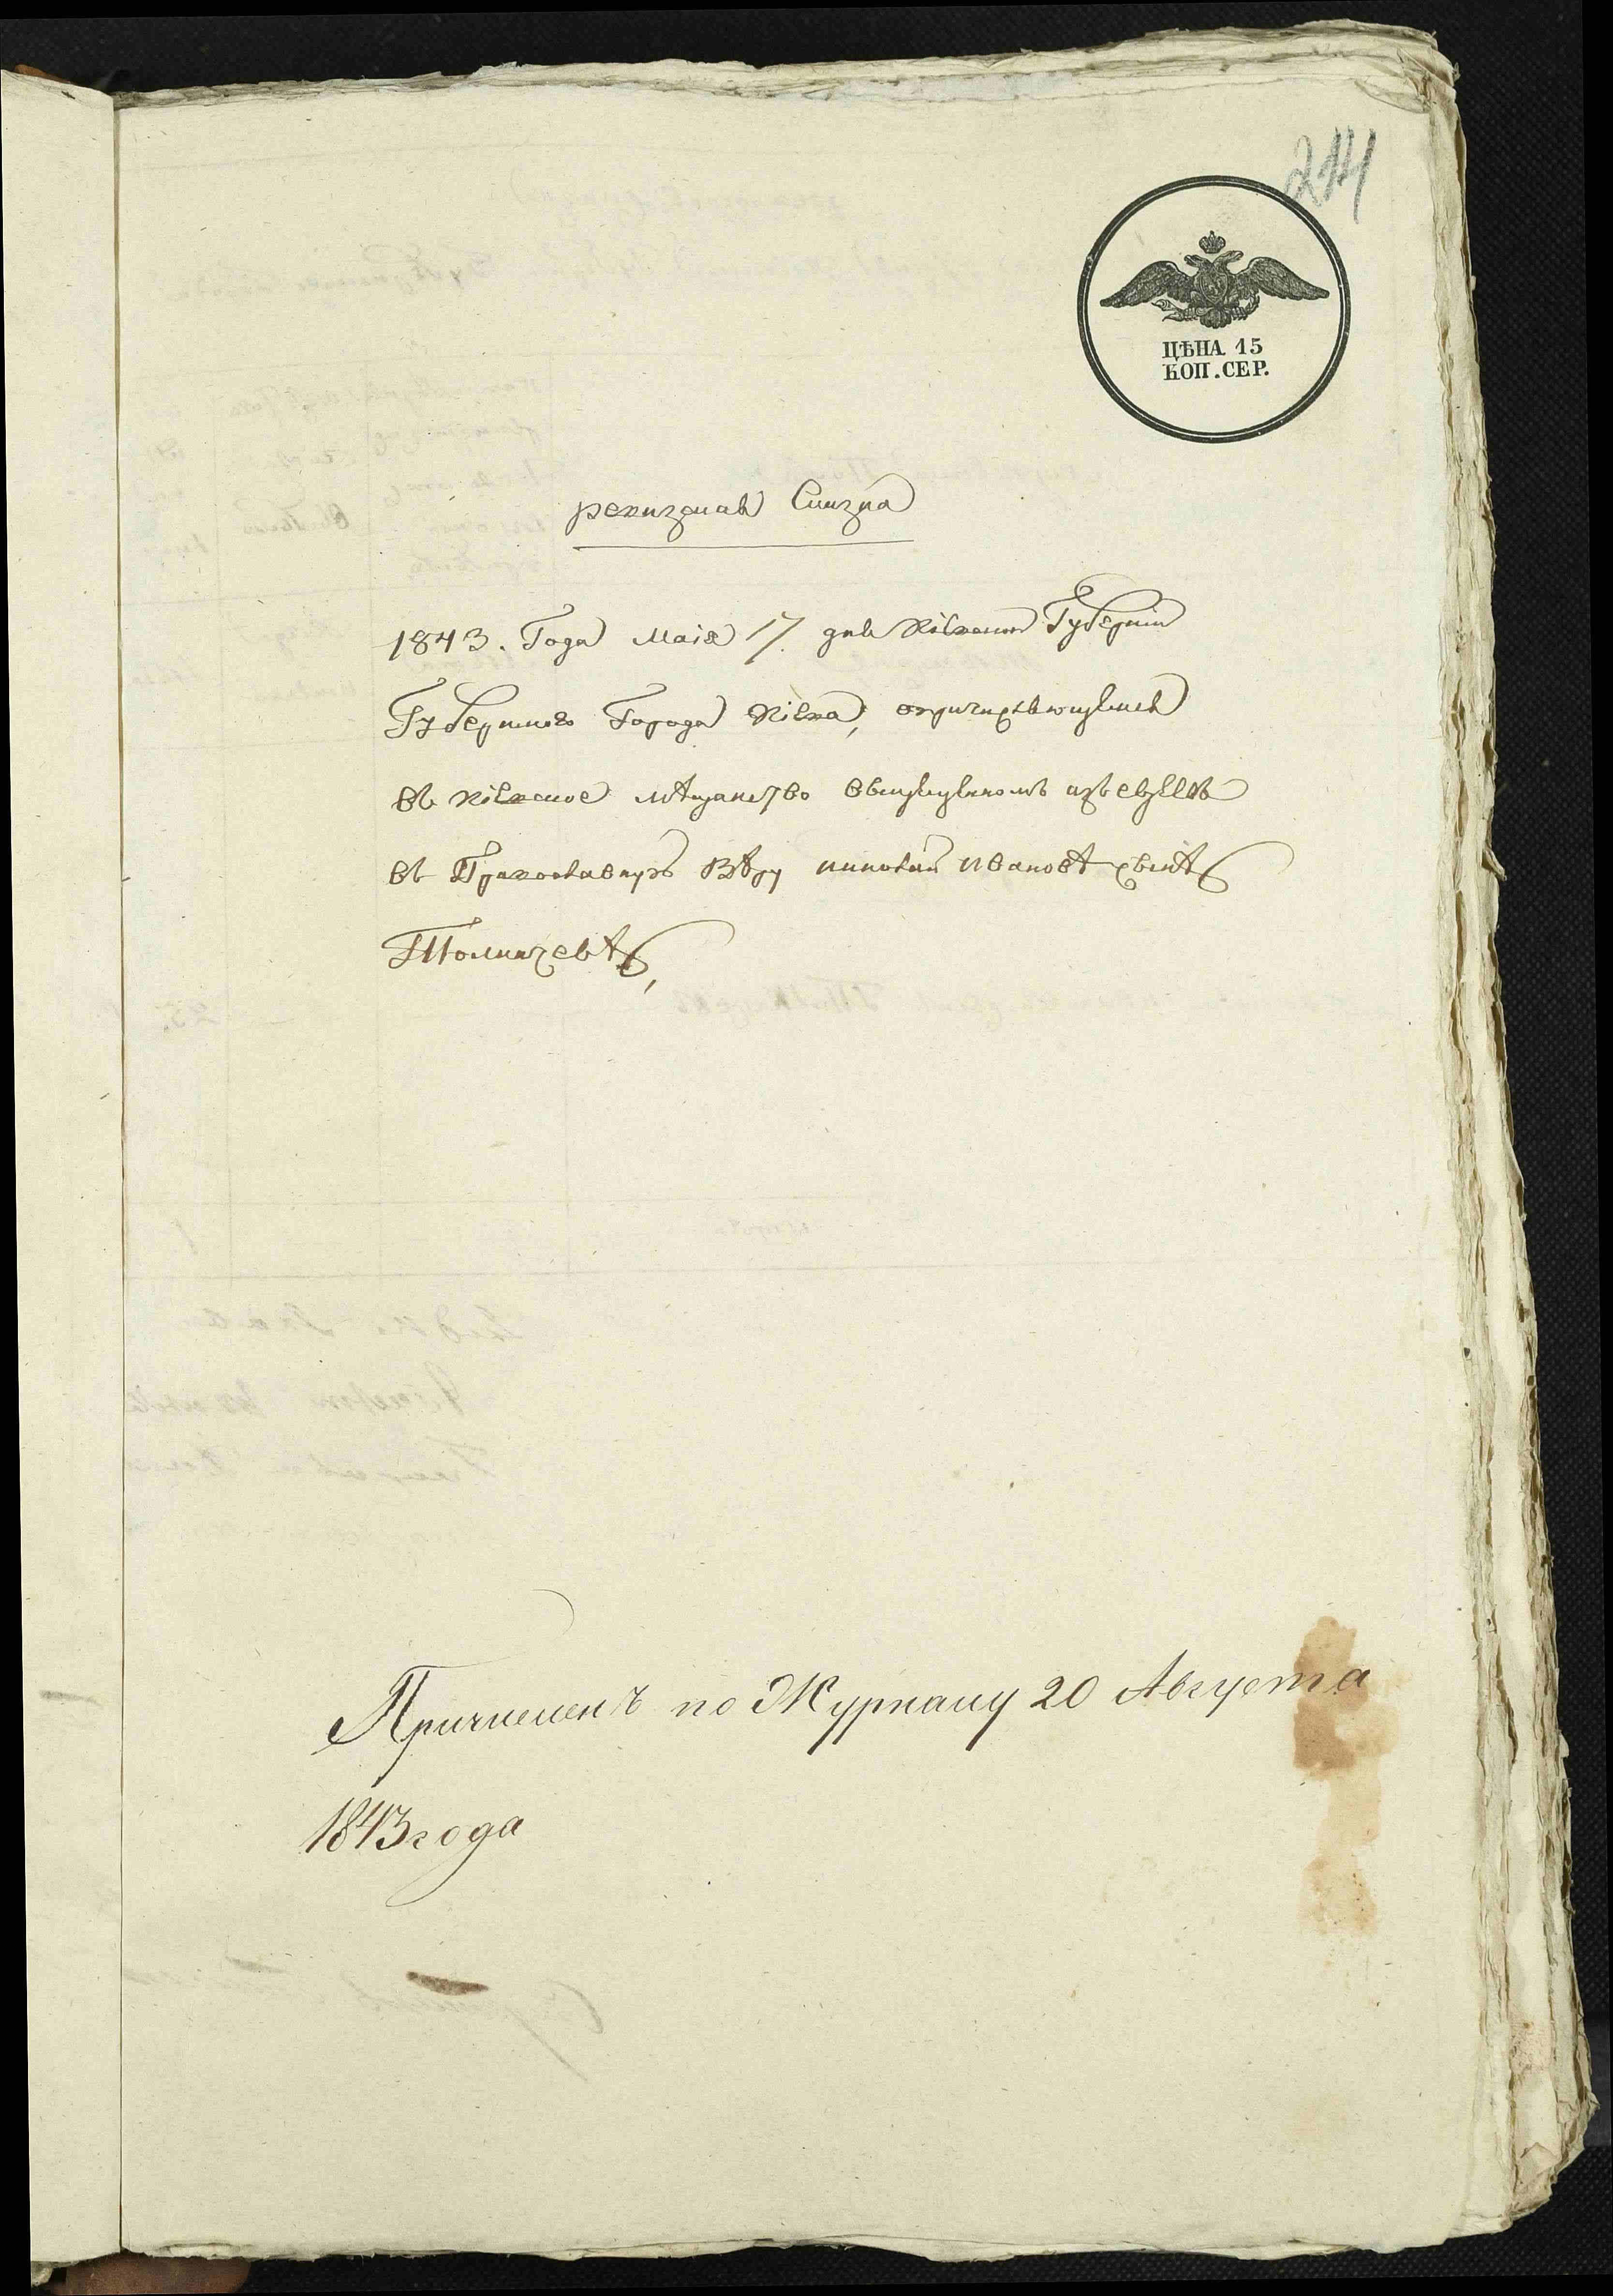 214
ЦѢНА 15
КОП. СЕР.
ревизская Сказка
1843. Года Маія 17 дня Кіевской Губерніи
Губернского Города Кіева, о причисляющемся
въ Кіевское мѣщанство изъ евреевъ
въ Православную Вѣру Николаѣ Ивановѣ сынѣ
Причисленъ по Журналу 20 Августа
1843 года